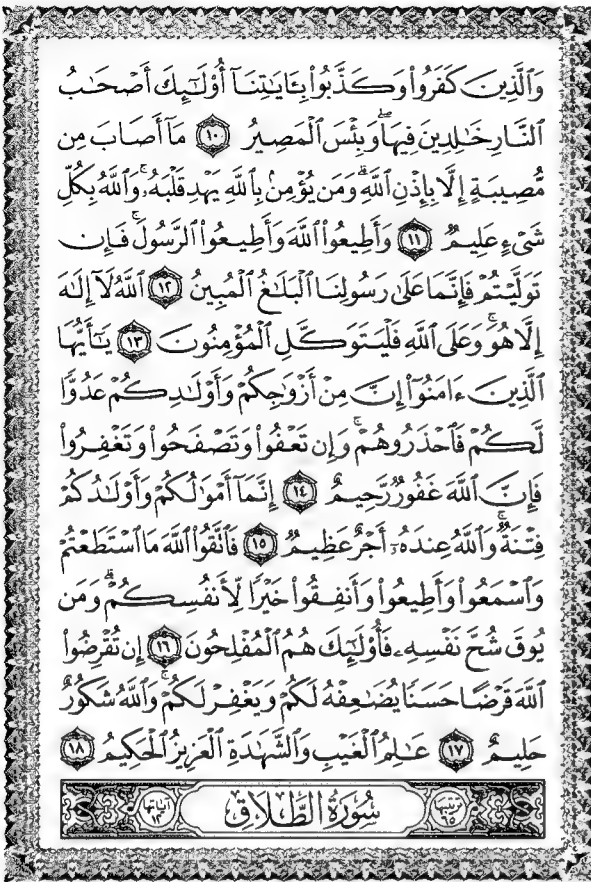 وَٱلَّذِينَ كَفَرُوا۟ وَكَذَّبُوا۟ بِـَٔايَـٰتِنَآ أُو۟لَـٰٓئِكَ أَصْحَـٰبُ
ٱلنَّارِ خَـٰلِدِينَ فِيهَا ۖ وَبِئْسَ ٱلْمَصِيرُ ١٠ مَآ أَصَابَ مِن
مُّصِيبَةٍ إِلَّا بِإِذْنِ ٱللَّهِ ۗ وَمَن يُؤْمِنۢ بِٱللَّهِ يَهْدِ قَلْبَهُۥ ۚ وَٱللَّهُ بِكُلِّ
شَىْءٍ عَلِيمٌ ١١ وَأَطِيعُوا۟ ٱللَّهَ وَأَطِيعُوا۟ ٱلرَّسُولَ ۚ فَإِن
تَوَلَّيْتُمْ فَإِنَّمَا عَلَىٰ رَسُولِنَا ٱلْبَلَـٰغُ ٱلْمُبِينُ ١٢ ٱللَّهُ لَآ إِلَـٰهَ
إِلَّا هُوَ ۚ وَعَلَى ٱللَّهِ فَلْيَتَوَكَّلِ ٱلْمُؤْمِنُونَ ١٣ يَـٰٓأَيُّهَا
ٱلَّذِينَ ءَامَنُوٓا۟ إِنَّ مِنْ أَزْوَٰجِكُمْ وَأَوْلَـٰدِكُمْ عَدُوًّا
لَّكُمْ فَٱحْذَرُوهُمْ ۚ وَإِن تَعْفُوا۟ وَتَصْفَحُوا۟ وَتَغْفِرُوا۟
فَإِنَّ ٱللَّهَ غَفُورٌ رَّحِيمٌ ١٤ إِنَّمَآ أَمْوَٰلُكُمْ وَأَوْلَـٰدُكُمْ
فِتْنَةٌ ۚ وَٱللَّهُ عِندَهُۥٓ أَجْرٌ عَظِيمٌ ١٥ فَٱتَّقُوا۟ ٱللَّهَ مَا ٱسْتَطَعْتُمْ
وَٱسْمَعُوا۟ وَأَطِيعُوا۟ وَأَنفِقُوا۟ خَيْرًا لِّأَنفُسِكُمْ ۗ وَمَن
يُوقَ شُحَّ نَفْسِهِۦ فَأُو۟لَـٰٓئِكَ هُمُ ٱلْمُفْلِحُونَ ١٦ إِن تُقْرِضُوا۟
ٱللَّهَ قَرْضًا حَسَنًا يُضَـٰعِفْهُ لَكُمْ وَيَغْفِرْ لَكُمْ ۚ وَٱللَّهُ شَكُورٌ
حَلِيمٌ ١٧ عَـٰلِمُ ٱلْغَيْبِ وَٱلشَّهَـٰدَةِ ٱلْعَزِيزُ ٱلْحَكِيمُ ١٨
ترتيبها ٦٥ سُورَةُ ٱلطَّلَاقِ آياتها ١٢